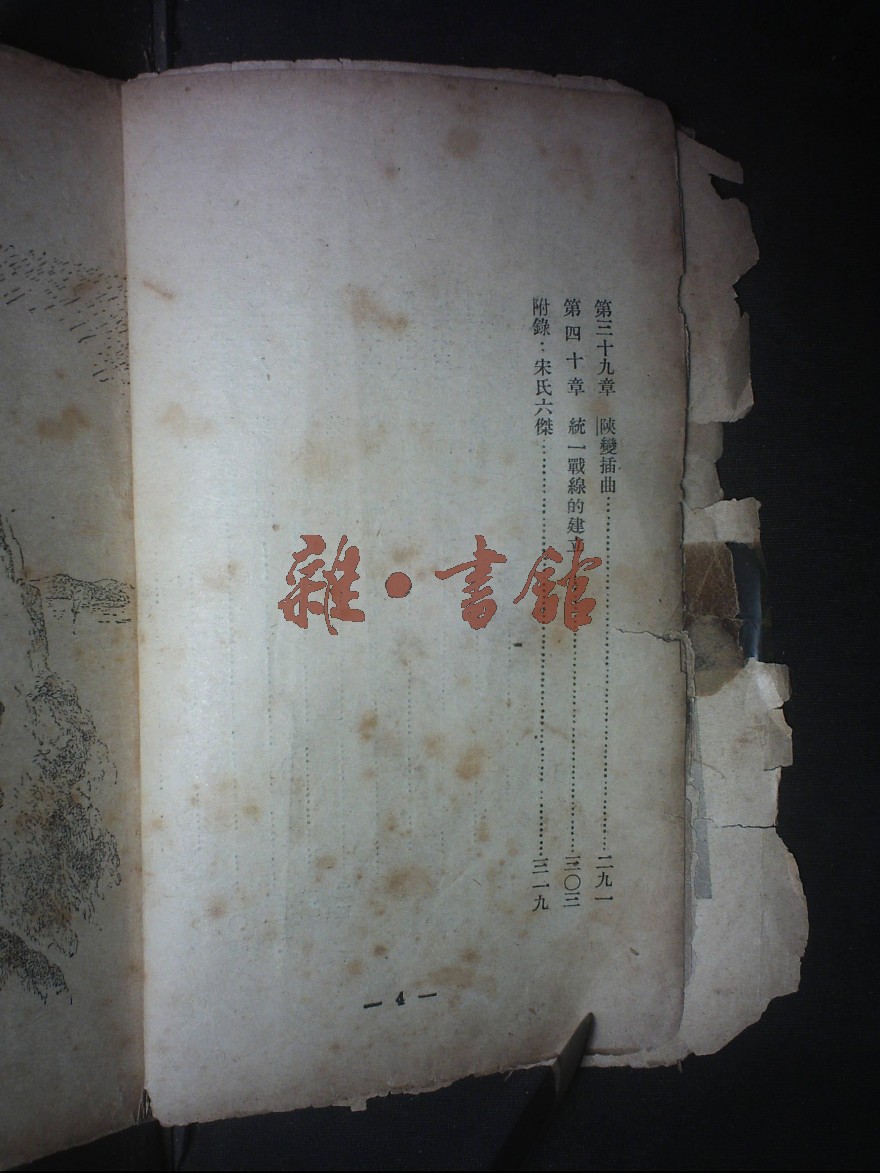 第三十九章　陝變插曲……………………二九一
第四十章　統一戰線的建立……………………三〇三
附錄：宋氏六傑……………………三一九
— 4 —
雜·書館